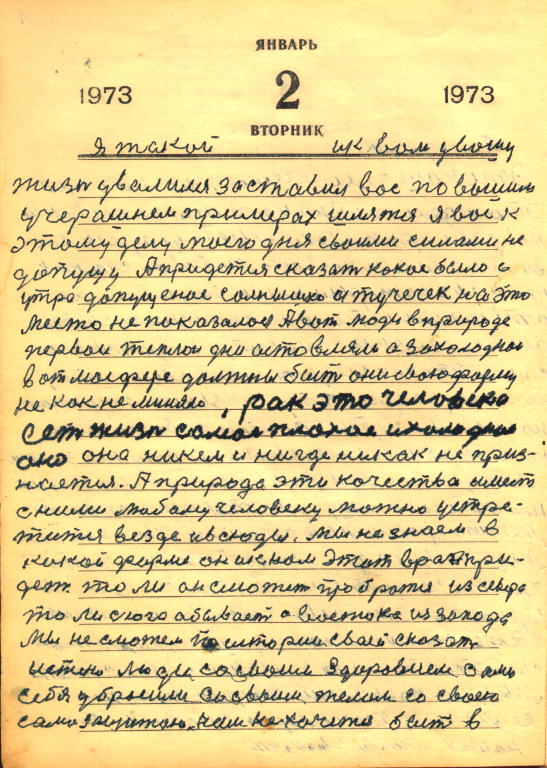 ЯНВАРЬ
1973 2 1973
ВТОРНИК
я такой и к вам у вашу
жизн увалимя заставил вас по вашим
учерашнем примерах шлятя я вас к
этому делу моего дня своими силами не
допущу А придется сказат какое было с
утра допущеное солнышко от тучечек на это
место не показалося А вот люди в природе
первои теплои дни оставляли а захолодное
в атмосфере должны быт они свою форму
не как не миняю, рак это человека
ест жизн самое плохое и холодное
оно она никем и нигде никак не приз-
нается. А природа эти качества имеет
с ними любому человеку можно устре-
титя везде и всюды. Мы не знаем в
какой форми он и к нам этот враг при-
дет. то ли он сможет пробратя из севера
то ли с юга а бывает с востока из запада
Мы не сможем по истории своей сказат
истено люди со своим здоровием само
себя убросили со своим телом со своею
само защитою. нам не хочется быт в